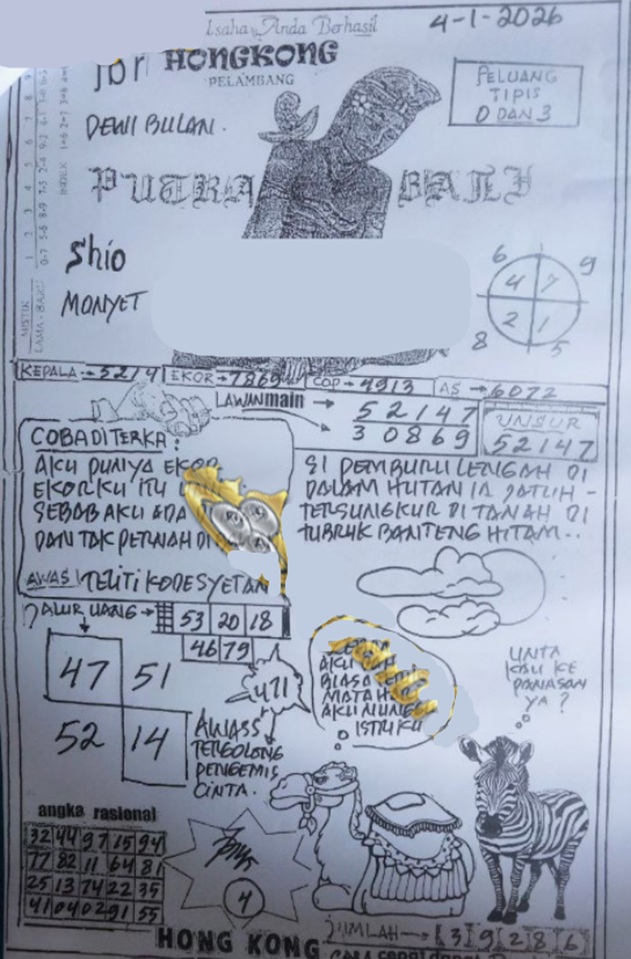 Usaha Anda Berhasil
4-1-2026
HONGKONG
PELAMBANG
PELUANG
TIPIS
0 DAN 3
DEWI BULAN.
PUTRA BALI
Shio
MONYET
6 9
4 7
2 1
8 5
MISTIK
LAMA - BARU
INDEX
KEPALA → 5214 EKOR → 7869 COP → 4913 AS → 6072
LAWAN main →
5 2 1 4 7
3 0 8 6 9
UNSUR
52147
COBA DITERKA:
AKU PUNYA EKOR
EKORKU ITU
SEBAB AKU ADA
DAN TAK PERNAH DI
SI PEMBURU LENGAH DI
DALAM HUTAN IA JATUH -
TERSUNGKUR DI TANAH DI
TUBRUK BANTENG HITAM..
AWAS! TELITI KODE SYETAN
JALUR UANG → 53 20 18
46 79
47 51
52 14
471
AWASS
TERGOLONG
PENGEMIS
CINTA.
AKU
BIASA
MATA
AKU
ISTRIKU
UNTA
KAU KE
PANASAN
YA?
angka rasional
32 44 97 15 94
77 82 11 64 81
25 13 74 22 35
41 04 02 91 55
4
JUMLAH → 3 9 2 8 6
HONG KONG